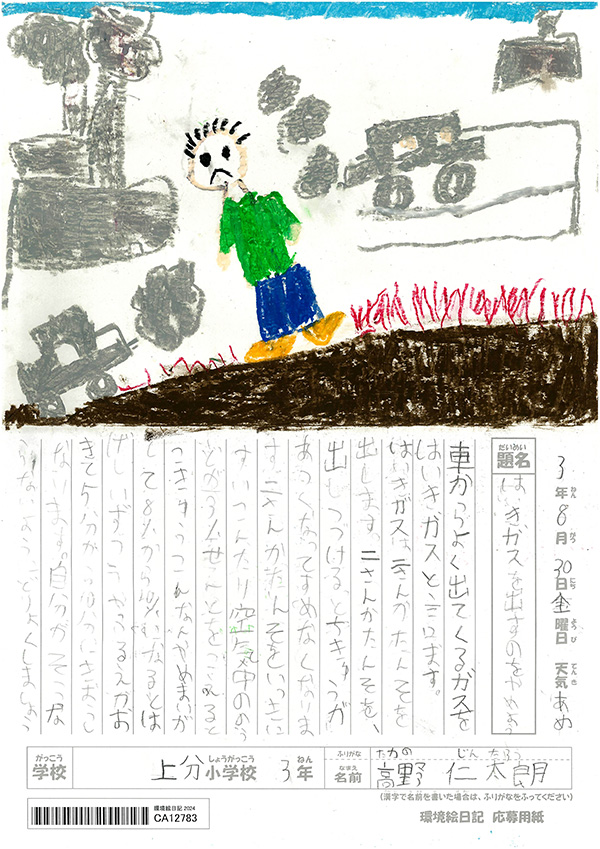 3年8月30日金曜日 天気 あめ
ねん がつ にち ようび てんき
だいめい
題名 はいきガスを出すのをやめよう
車からよく出てくるガスを
はいきガスと言います。
はいきガスは二さんかたんそを
出します。二さんかたんそを、
出しつづけるとちきゅうが
あつくなってすめなくなりま
す。二さんかたんそをいっきに
すいこんだり空気中ののう
きて5分から10分にきおくし
なります。自分がそうな
らないようにどりょくしましょう
がっこう
学校 上分 小学校 3年
しょうがっこう ねん
ふりがな たかの じんたろう
なまえ
名前 高野 仁太朗
(漢字で名前を書いた場合は、ふりがなをふってください)
環境絵日記 2024
CA12783
環境絵日記 応募用紙